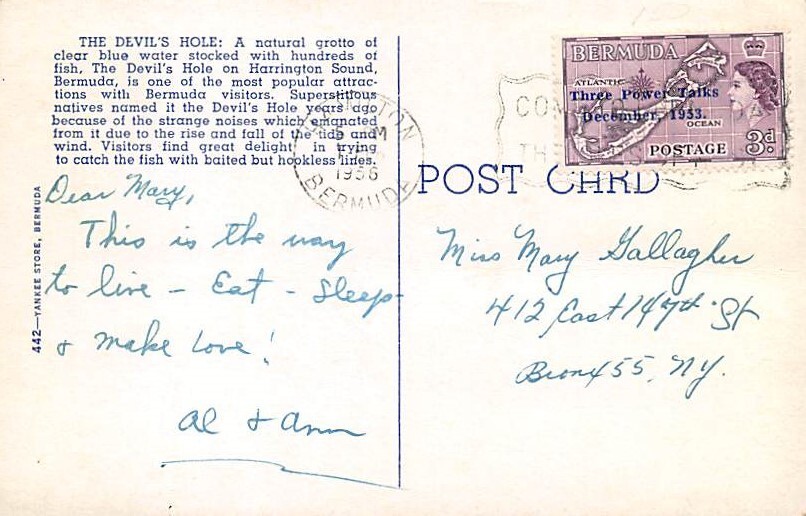 THE DEVIL'S HOLE: A natural grotto of
clear blue water stocked with hundreds of
fish, The Devil's Hole on Harrington Sound,
Bermuda, is one of the most popular attrac-
tions with Bermuda visitors. Superstitious
natives named it the Devil's Hole years ago
because of the strange noises which emanated
from it due to the rise and fall of the tide and
wind. Visitors find great delight in trying
to catch the fish with baited but hookless lines.
442—YANKEE STORE, BERMUDA
Dear Mary,
This is the way
to live - Eat - Sleep-
& make love!
Al & Ann
1956
BERMUDA
BERMUDA
ATLANTIC
Three Power Talks
December, 1953.
OCEAN
POSTAGE 3d
POST CARD
Miss Mary Gallagher
412 East 147th St
Bronx 55, NY.